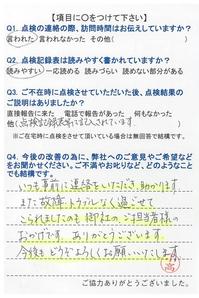 【項目に○をつけて下さい】
Q1. 点検の連絡の際、訪問時間はお伝えしていますか？
言われた 言われなかった その他( )
Q2. 点検記録表は読みやすく書かれていますか？
読みやすい 一応読める 読みづらい 読めない部分がある
Q3. ご不在時に点検させていただいた後、点検結果の
ご説明はありましたか？
直接報告に来た 電話で報告があった 何もなかった
他( 点検記録表等に記入されています )
※ご在宅時に点検をさせて頂いている場合は無回答で結構です。
Q4. 今後の改善の為に、弊社へのご意見やご希望などを
お聞かせください。ご不満やお叱りなど、どのようなこと
でも結構です。
いつも事前に連絡をいただき、助かります。
また故障・トラブルなく過ごせて
こられましたのも御社のご担当者様の
おかげです。ありがとうございます。
今後もどうぞよろしくお願いいたします
高
ご協力ありがとうございました。